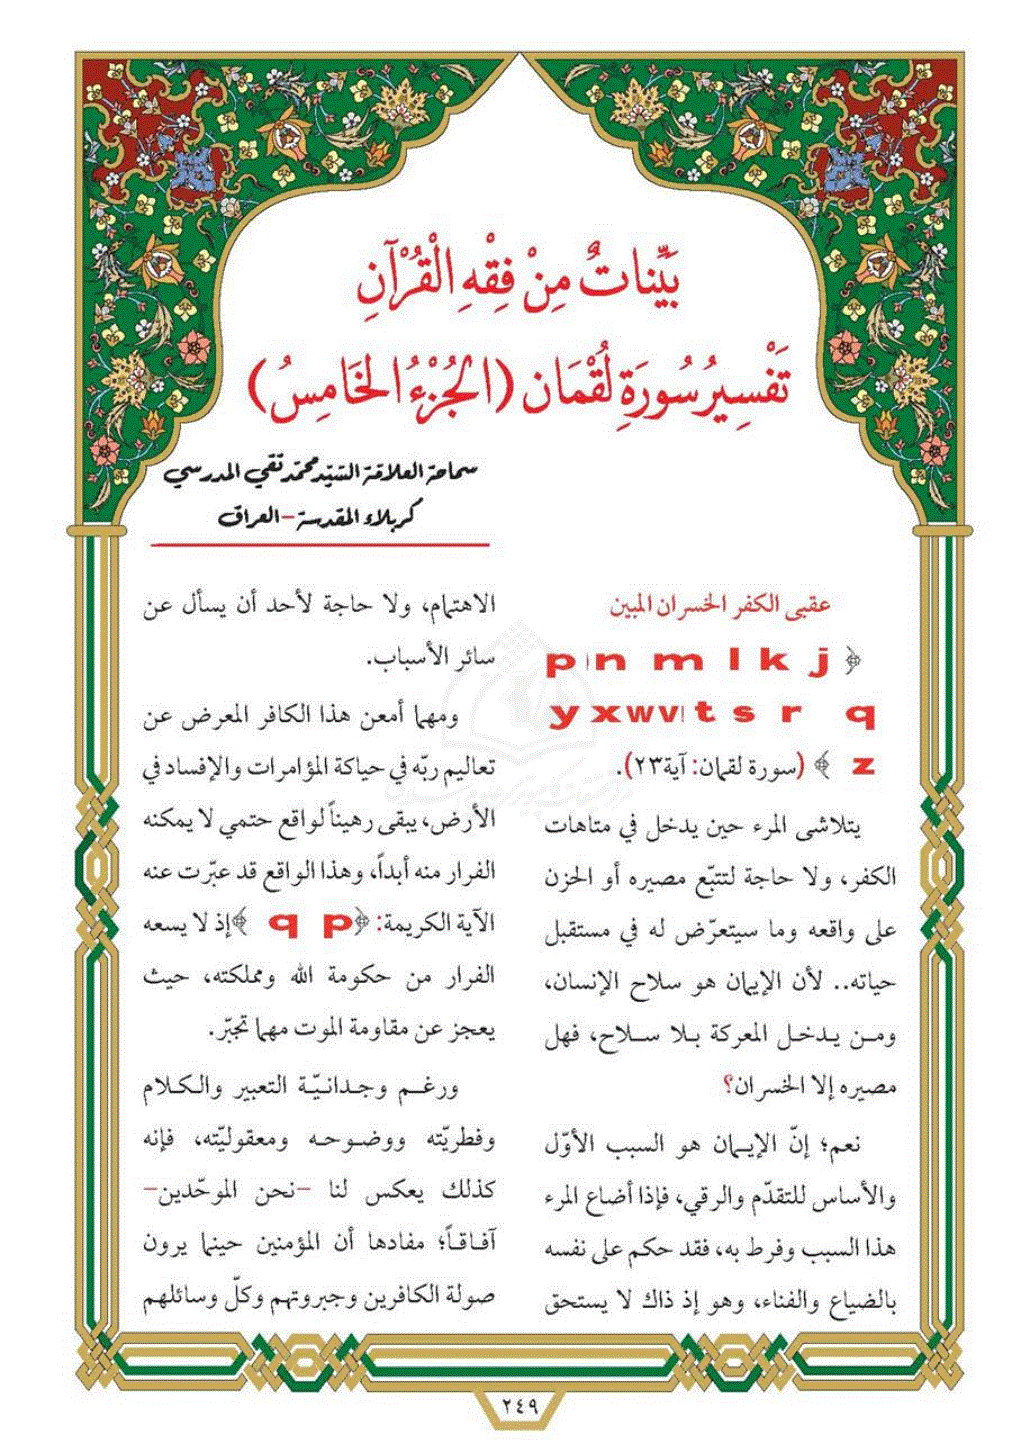 بَيِّنَاتٌ مِنْ فِقْهِ الْقُرْآنِ
تَفْسِيرُ سُورَةِ لُقْمَان (الجُزْءُ الخَامِسُ)
سماحة العلامة السيّد محمّد تقي المدرسي
كربلاء المقدسة – العراق
عقبى الكفر الخسران المبين
﴿ j k l m n p
q r s t vwx y
z ﴾ (سورة لقمان: آية٢٣).
يتلاشى المرء حين يدخل في متاهات
الكفر، ولا حاجة لتتبّع مصيره أو الحزن
على واقعه وما سيتعرّض له في مستقبل
حياته.. لأن الإيمان هو سلاح الإنسان،
ومن يدخل المعركة بلا سلاح، فهل
مصيره إلا الخسران؟
نعم؛ إنّ الإيمان هو السبب الأوّل
والأساس للتقدّم والرقي، فإذا أضاع المرء
هذا السبب وفرط به، فقد حكم على نفسه
بالضياع والفناء، وهو إذ ذاك لا يستحق
الاهتمام، ولا حاجة لأحد أن يسأل عن
سائر الأسباب.
ومهما أمعن هذا الكافر المعرض عن
تعاليم ربّه في حياكة المؤامرات والإفساد في
الأرض، يبقى رهيناً لواقع حتمي لا يمكنه
الفرار منه أبداً، وهذا الواقع قد عبّرت عنه
الآية الكريمة: ﴿ p q ﴾ إذ لا يسعه
الفرار من حكومة الله ومملكته، حيث
يعجز عن مقاومة الموت مهما تجبّر.
ورغم وجدانيّة التعبير والكلام
وفطريّته ووضوحه ومعقوليّته، فإنه
كذلك يعكس لنا –نحن الموحّدين–
آفاقاً؛ مفادها أن المؤمنين حينما يرون
صولة الكافرين وجبروتهم وكلّ وسائلهم
٢٤٩